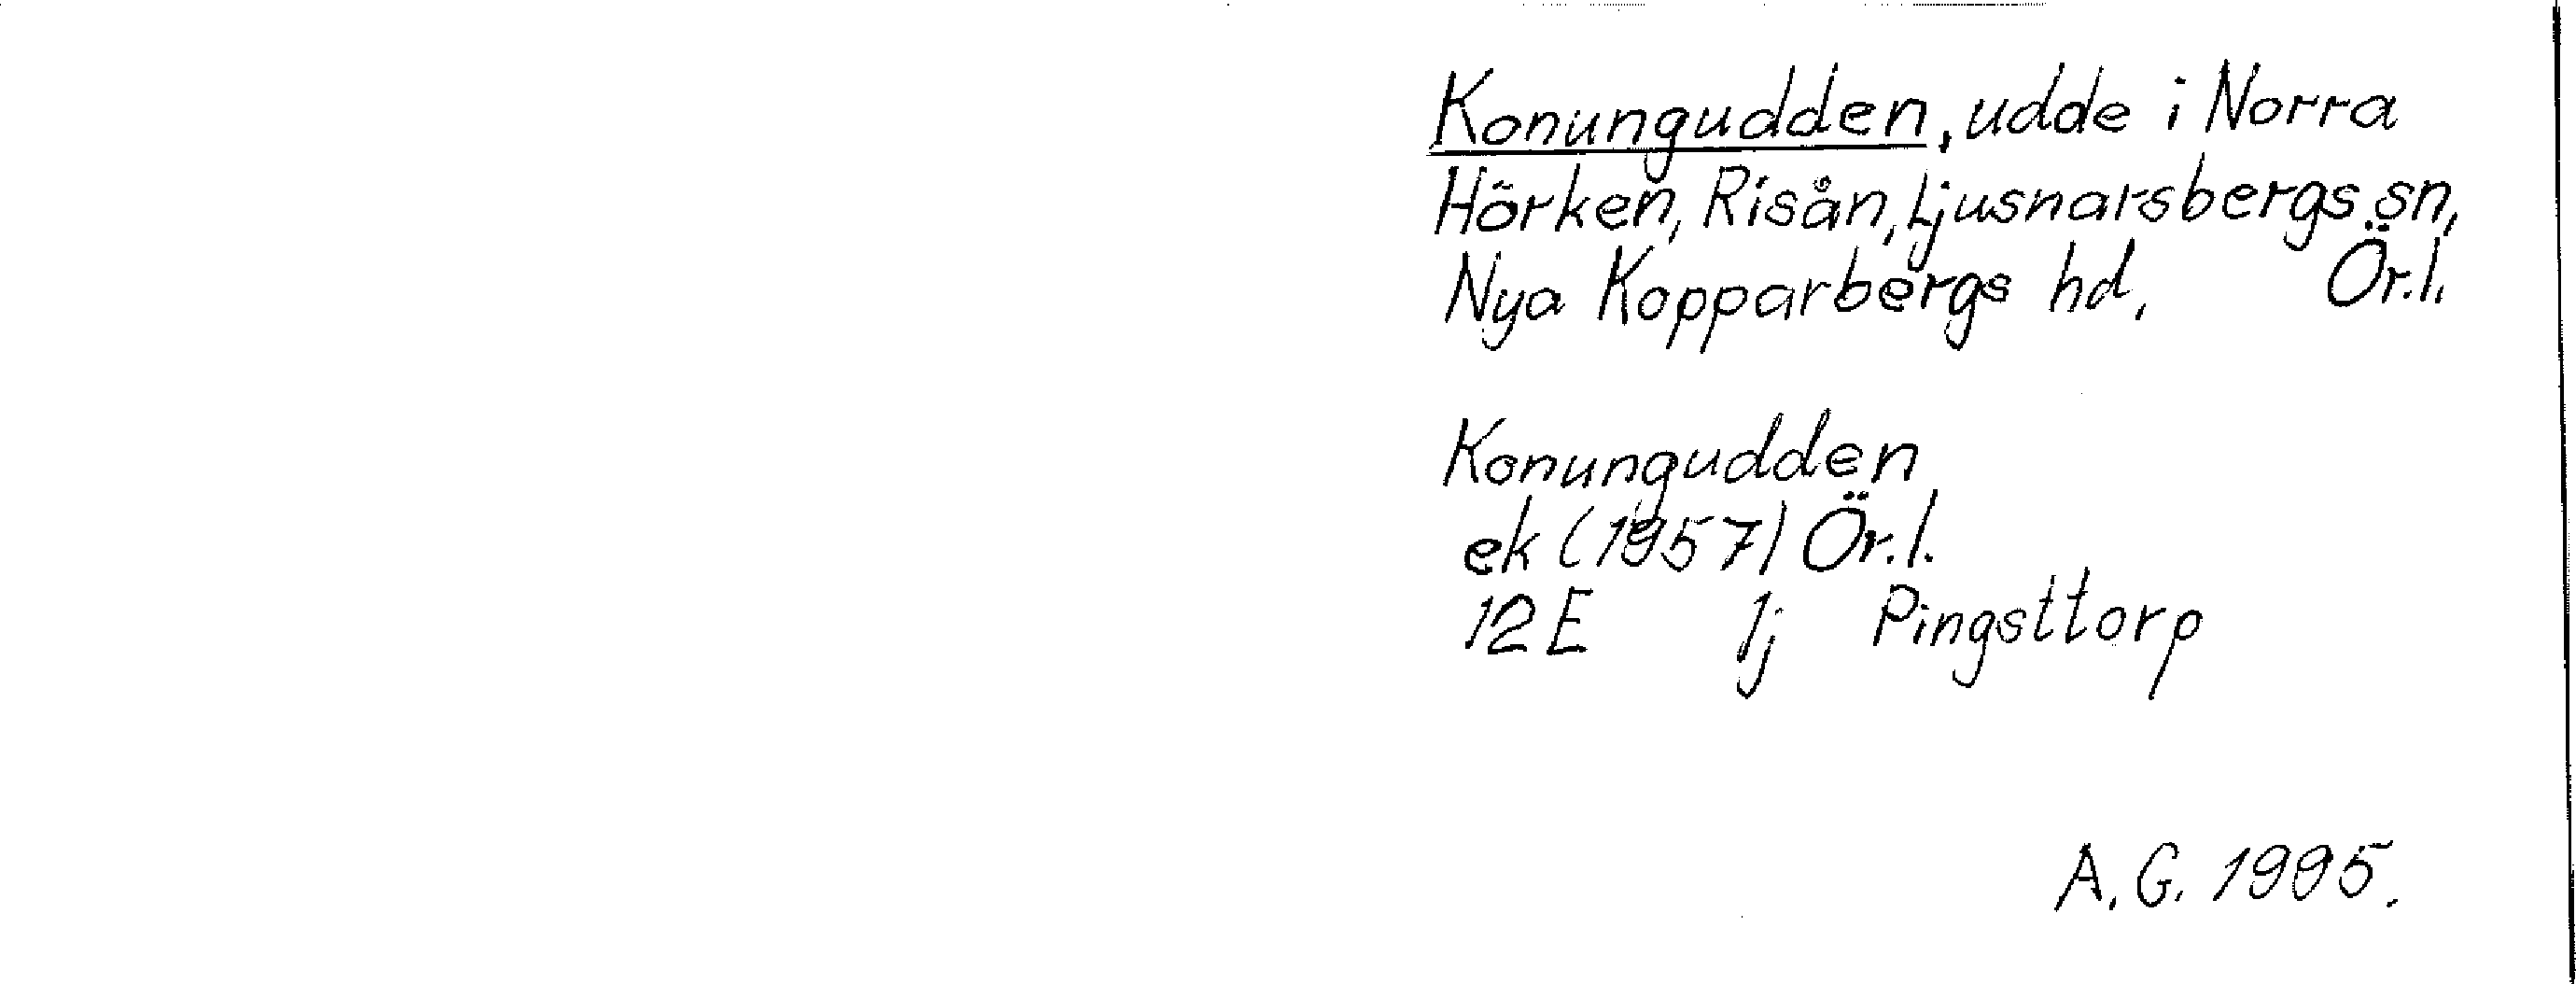 Konungudden, udde i Norra
Hörken, Risån, Ljusnarsbergs sn,
Nya Kopparbergs hd, Ör.l.
Konungudden
ek (1957) Ör.l.
12 E 1j Pingsttorp
A.G. 1995.